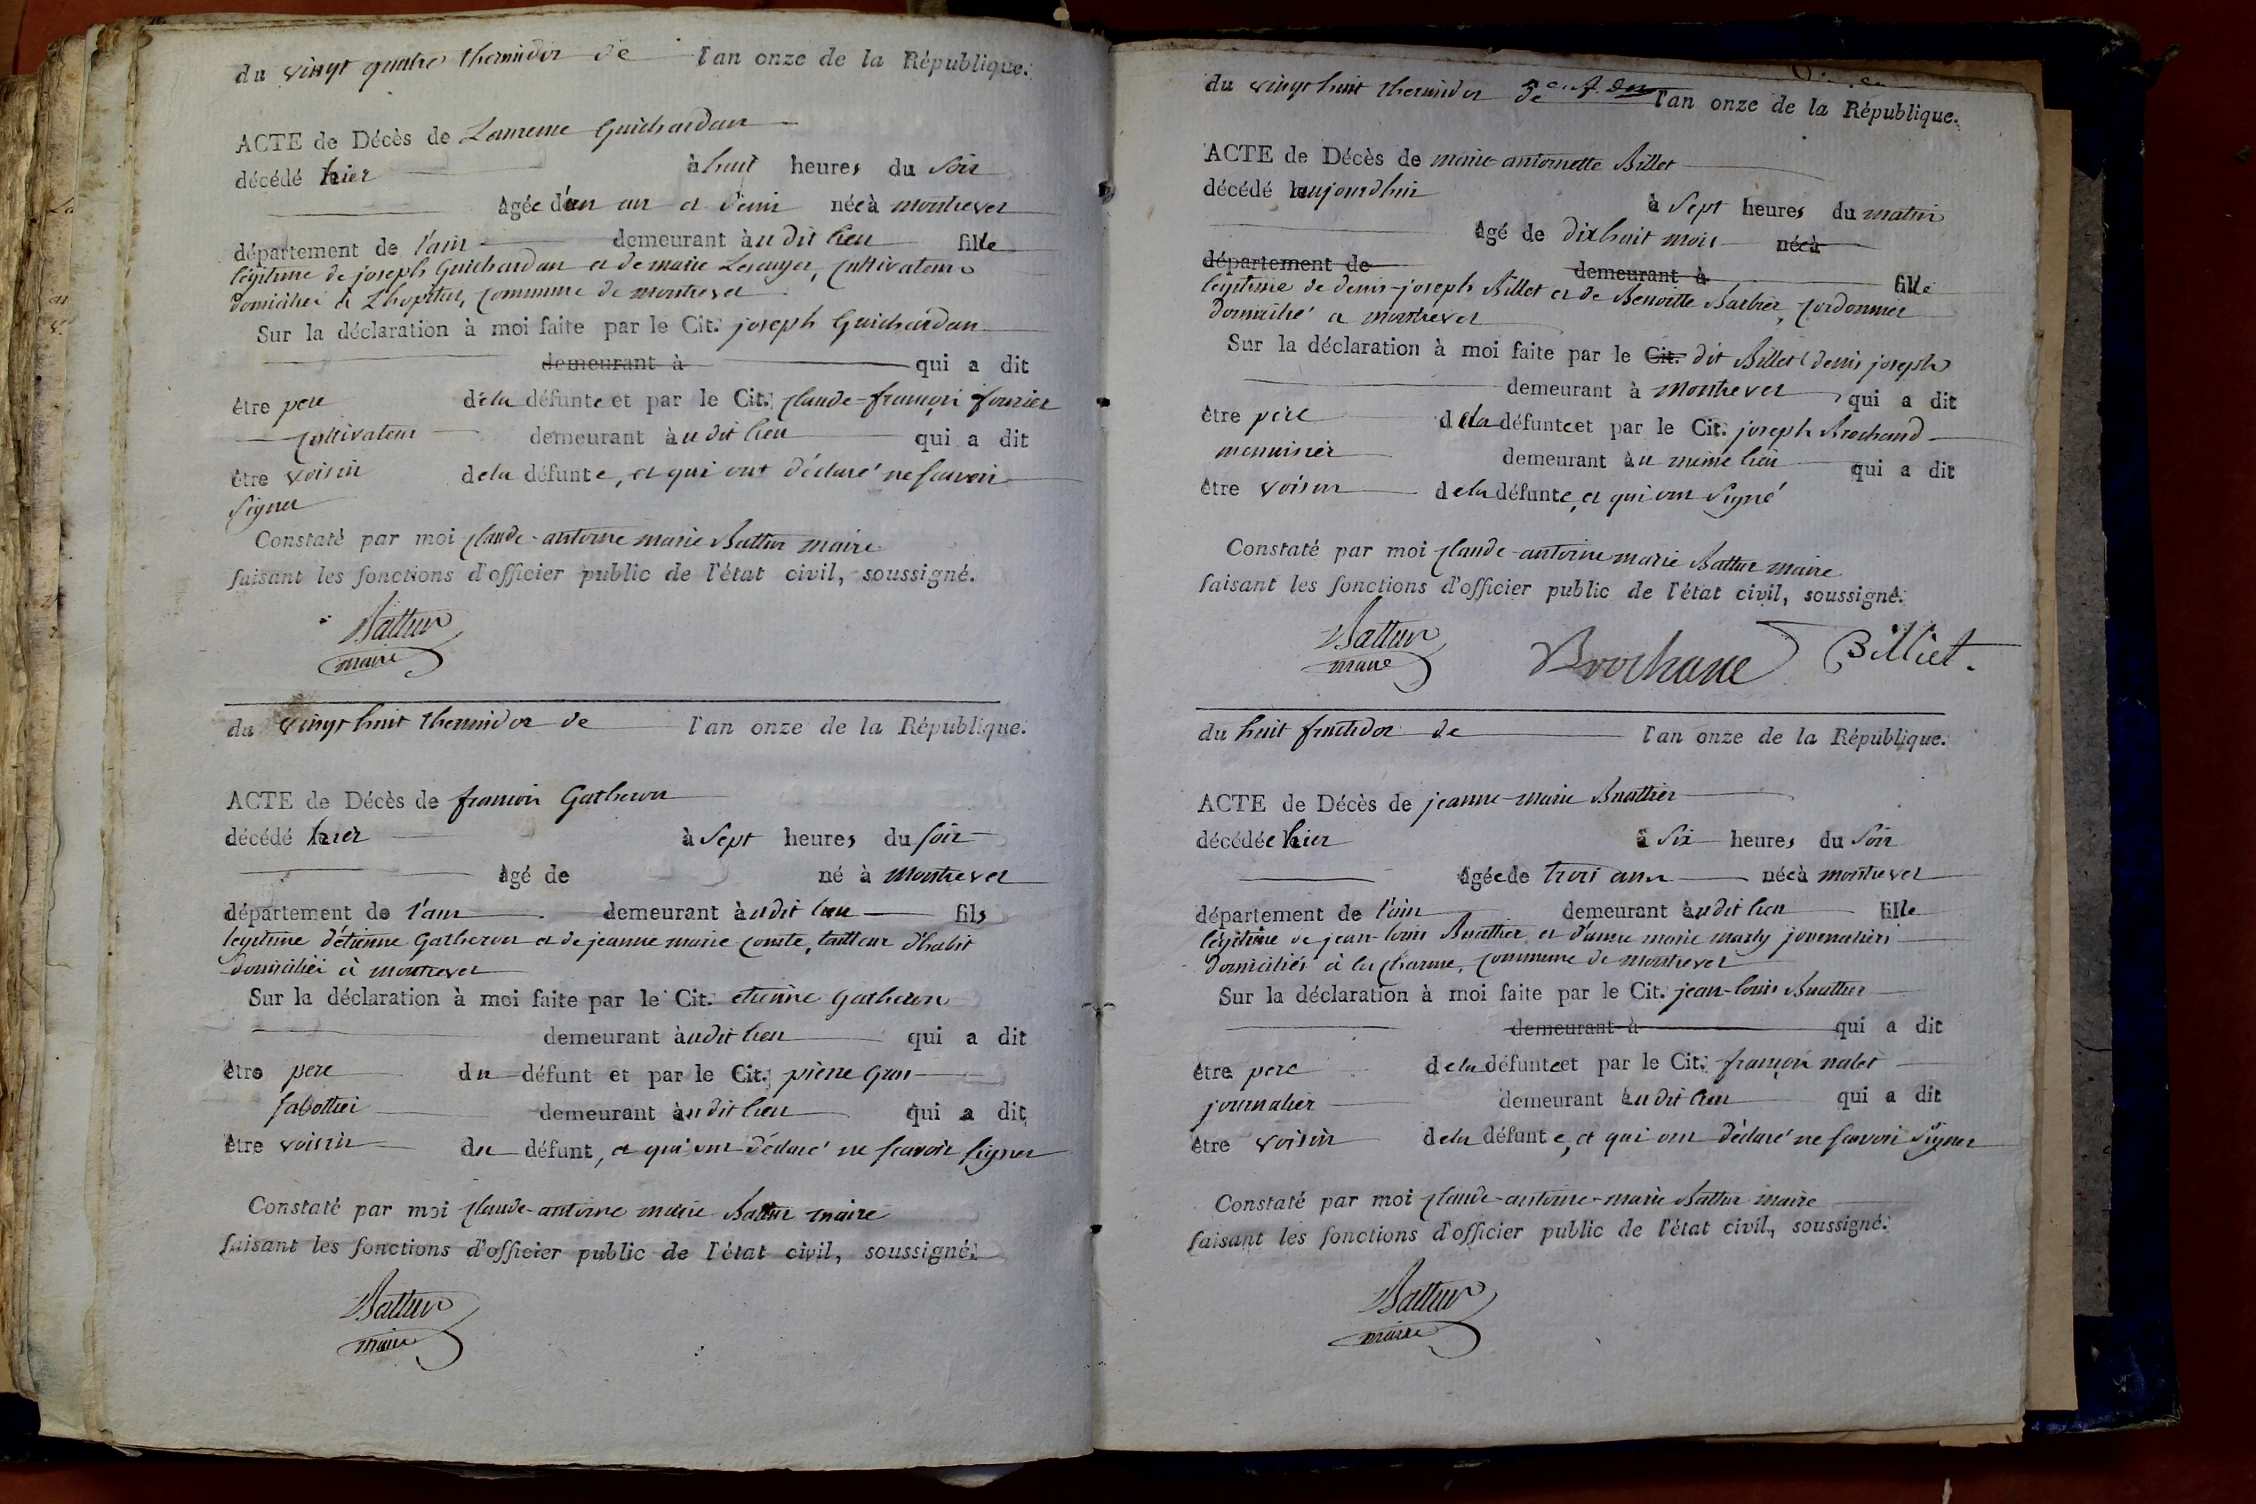 du vingt quatre thermidor de l'an onze de la République.
ACTE de Décès de Laurence Guichardan
décédé hier à huit heures du soir
âgée d'un an et demi née à montrevel
département de l'ain demeurant àu dit lieu fille
légitime de joseph Guichardan et de marie Lescuyer, cultivateurs
domiciliés à L'hopital, commune de montrevel
Sur la déclaration à moi faite par le Cit. joseph Guichardan
demeurant à qui a dit
être pere de la défunte et par le Cit. claude-françois fourier
cultivateur demeurant àu dit lieu qui a dit
être voisin de la défunte, et qui ont déclaré ne scavoir
signer
Constaté par moi claude-antoine marie Battur maire
faisant les fonctions d'officier public de l'état civil, soussigné.
Battur
maire
du vingt huit thermidor de l'an onze de la République.
ACTE de Décès de françois Gatheron
décédé hier à sept heures du soir
âgé de né à Montrevel
département de l'ain demeurant àu dit lieu fils
legitime d'étienne Gatheron et de jeanne marie comte, tailleur d'habit
domiciliés à montrevel
Sur la déclaration à moi faite par le Cit. etienne Gatheron
demeurant àu dit lieu qui a dit
être pere du défunt et par le Cit. pierre Gras
sabottier demeurant àu dit lieu qui a dit
être voisin du défunt, et qui ont déclaré ne scavoir signer
Constaté par moi claude-antoine marie Battur maire
faisant les fonctions d'officier public de l'état civil, soussigné.
Battur
maire
du vingt huit thermidor de l'an onze de la République.
ACTE de Décès de marie-antoinette Billet
décédé aujourdhui à sept heures du matin
âgé de dix huit mois née à
département de demeurant à fille
legitime de denis-joseph Billet et de Benoitte Barbier, cordonnier
domicilié a montrevel
Sur la déclaration à moi faite par le Cit. dit Billet (denis joseph)
demeurant à Montrevel qui a dit
être pere de la défunte et par le Cit. joseph Brochand
menuisier demeurant àu meme lieu qui a dit
être voisin de la défunte, et qui ont signé
Constaté par moi claude-antoine marie Battur maire
faisant les fonctions d'officier public de l'état civil, soussigné.
Battur Billiet.
maire
du huit fructidor de l'an onze de la République.
ACTE de Décès de jeanne-marie Buathier
décédée hier à six heures du soir
âgée de trois ans née à montrevel
département de l'ain demeurant àu dit lieu fille
légitime de jean-louis Buathier et d'anne marie marly journaliers
domiciliés à la charme, commune de montrevel
Sur la déclaration à moi faite par le Cit. jean-louis Buathier
demeurant à qui a dit
être pere de la défunte et par le Cit. françois nalet
journalier demeurant àu dit lieu qui a dit
être voisin de la défunte, et qui ont déclaré ne scavoir signer
Constaté par moi claude-antoine-marie Battur maire
faisant les fonctions d'officier public de l'état civil, soussigné.
Battur
maire